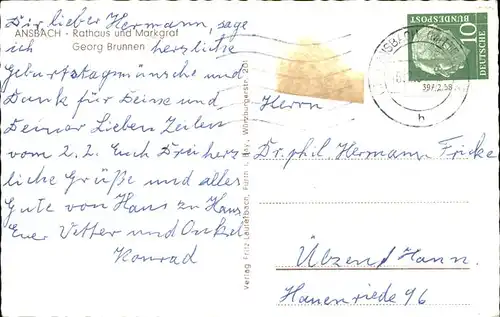 Dir lieber Hermann, sage
ANSBACH - Rathaus und Markgraf
ich herzliche
Georg Brunnen
Geburtstagswünsche und
Dank für Deine und
Deiner Lieben Zeilen
vom 2.2. Euch Drei herz
liche Grüße und alles
Gute von Haus zu Haus
Euer Vetter und Onkel
Konrad
Verlag Fritz Lauterbach, Fürth i. Bay., Würzburgerstr. 20
ANSBACH
h
10
DEUTSCHE
BUNDESPOST
Herrn
Dr. phil Hermann Fricke
Hann.
Hanenriede 96